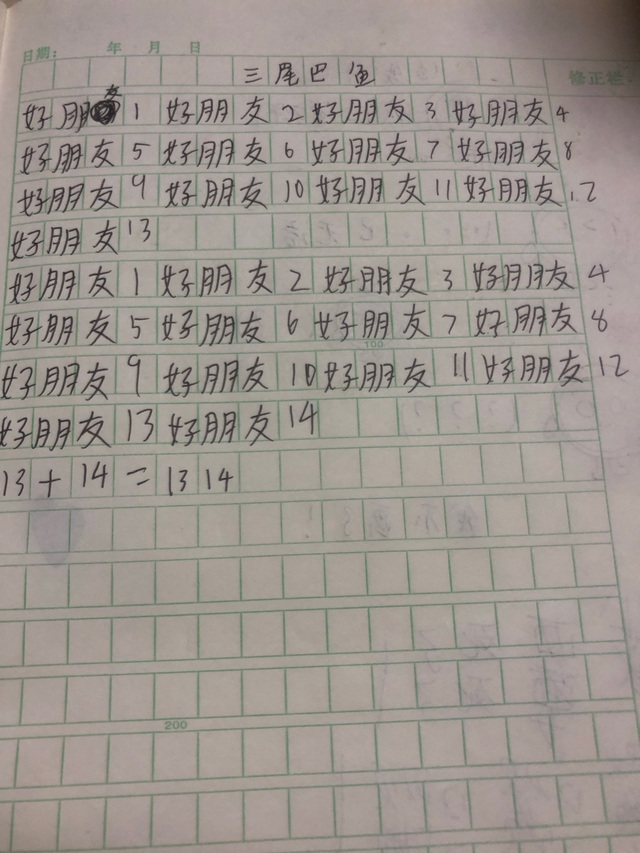 日期： 年 月 日
三尾巴鱼
修正栏
好朋友1 好朋友2 好朋友3 好朋友4
好朋友5 好朋友6 好朋友7 好朋友8
好朋友9 好朋友10 好朋友11 好朋友12
好朋友13
好朋友1 好朋友2 好朋友3 好朋友4
好朋友5 好朋友6 好朋友7 好朋友8
100
好朋友9 好朋友10 好朋友11 好朋友12
好朋友13 好朋友14
13+14=1314
200